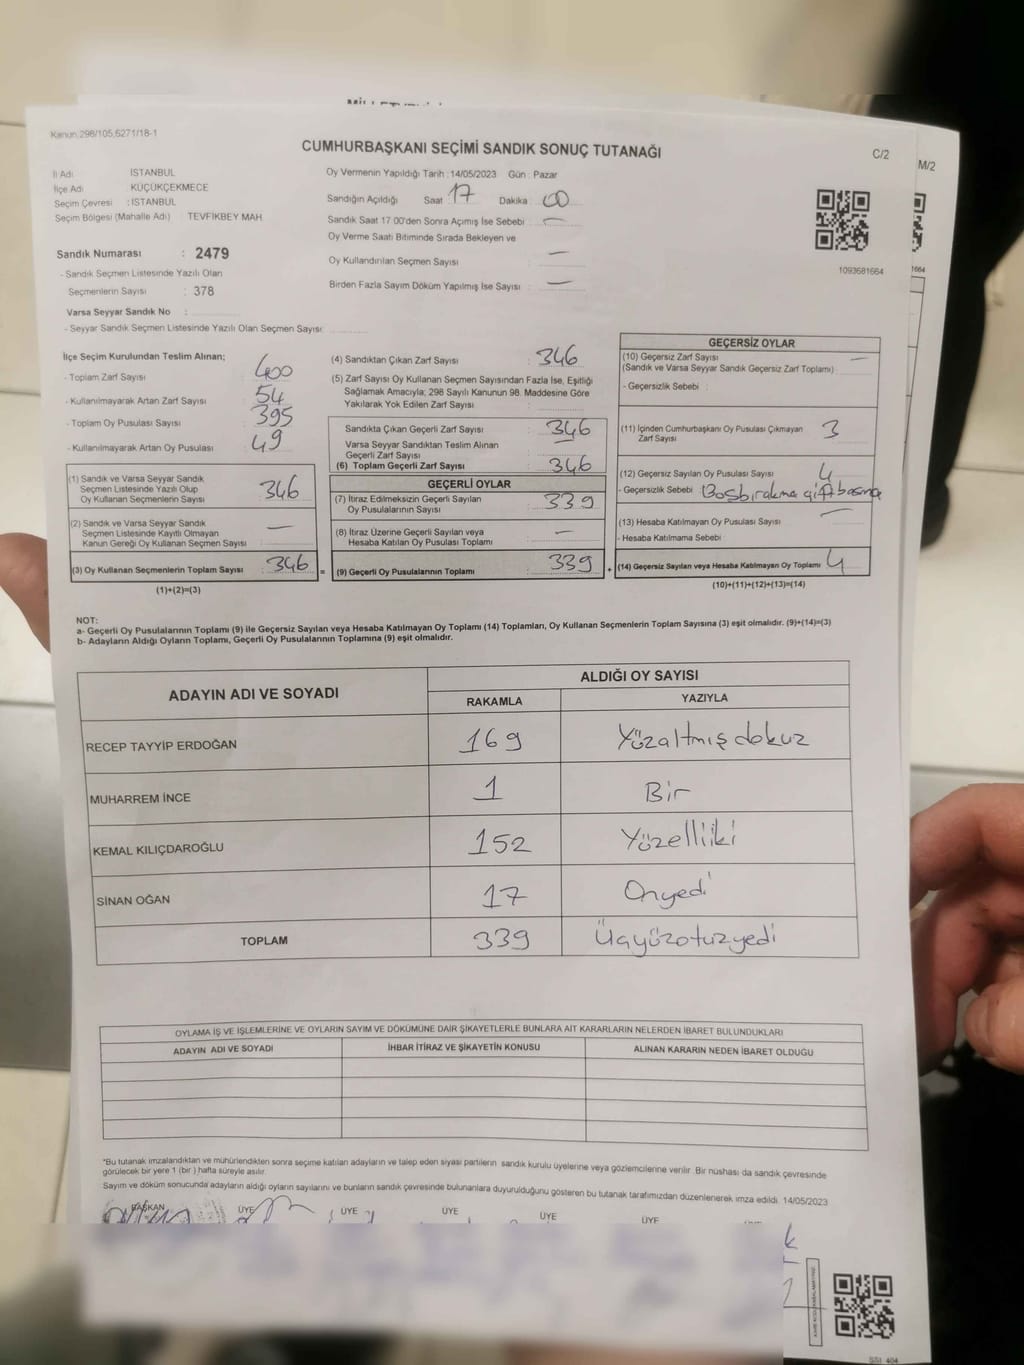 Kanun:298/105,6271/18-1
CUMHURBAŞKANI SEÇİMİ SANDIK SONUÇ TUTANAĞI
C/2
M/2
İl Adı İSTANBUL
İlçe Adı KÜÇÜKÇEKMECE
Seçim Çevresi : İSTANBUL
Seçim Bölgesi (Mahalle Adı) TEVFİKBEY MAH.
Oy Vermenin Yapıldığı Tarih : 14/05/2023 Gün : Pazar
Sandığın Açıldığı Saat 17 Dakika 00
Sandık Saat 17.00'den Sonra Açımış İse Sebebi : —
Oy Verme Saati Bitiminde Sırada Bekleyen ve
Oy Kullandırılan Seçmen Sayısı —
Birden Fazla Sayım Döküm Yapılmış İse Sayısı : —
1093681664
Sandık Numarası : 2479
- Sandık Seçmen Listesinde Yazılı Olan
Seçmenlerin Sayısı : 378
Varsa Seyyar Sandık No :
- Seyyar Sandık Seçmen Listesinde Yazılı Olan Seçmen Sayısı:
İlçe Seçim Kurulundan Teslim Alınan;
- Toplam Zarf Sayısı 400
- Kullanılmayarak Artan Zarf Sayısı 54
- Toplam Oy Pusulası Sayısı 395
- Kullanılmayarak Artan Oy Pusulası 49
(1) Sandık ve Varsa Seyyar Sandık
Seçmen Listesinde Yazılı Olup
Oy Kullanan Seçmenlerin Sayısı 346
(2) Sandık ve Varsa Seyyar Sandık
Seçmen Listesinde Kayıtlı Olmayan
Kanun Gereği Oy Kullanan Seçmen Sayısı —
(3) Oy Kullanan Seçmenlerin Toplam Sayısı 346 =
(1)+(2)=(3)
(4) Sandıktan Çıkan Zarf Sayısı 346
(5) Zarf Sayısı Oy Kullanan Seçmen Sayısından Fazla İse, Eşitliği
Sağlamak Amacıyla; 298 Sayılı Kanunun 98. Maddesine Göre
Yakılarak Yok Edilen Zarf Sayısı
Sandıkta Çıkan Geçerli Zarf Sayısı 346
Varsa Seyyar Sandıktan Teslim Alınan
Geçerli Zarf Sayısı —
(6) Toplam Geçerli Zarf Sayısı 346
GEÇERLİ OYLAR
(7) İtiraz Edilmeksizin Geçerli Sayılan
Oy Pusulalarının Sayısı 339
(8) İtiraz Üzerine Geçerli Sayılan veya
Hesaba Katılan Oy Pusulası Toplamı —
(9) Geçerli Oy Pusulalarının Toplamı 339 +
GEÇERSİZ OYLAR
(10) Geçersiz Zarf Sayısı —
(Sandık ve Varsa Seyyar Sandık Geçersiz Zarf Toplamı)
- Geçersizlik Sebebi :
(11) İçinden Cumhurbaşkanı Oy Pusulası Çıkmayan
Zarf Sayısı 3
(12) Geçersiz Sayılan Oy Pusulası Sayısı 4
- Geçersizlik Sebebi : Boş bırakma çift basma
(13) Hesaba Katılmayan Oy Pusulası Sayısı —
- Hesaba Katılmama Sebebi
(14) Geçersiz Sayılan veya Hesaba Katılmayan Oy Toplamı 4
(10)+(11)+(12)+(13)=(14)
NOT:
a- Geçerli Oy Pusulalarının Toplamı (9) ile Geçersiz Sayılan veya Hesaba Katılmayan Oy Toplamı (14) Toplamları, Oy Kullanan Seçmenlerin Toplam Sayısına (3) eşit olmalıdır. (9)+(14)=(3)
b- Adayların Aldığı Oyların Toplamı, Geçerli Oy Pusulalarının Toplamına (9) eşit olmalıdır.
ADAYIN ADI VE SOYADI
ALDIĞI OY SAYISI
RAKAMLA YAZIYLA
RECEP TAYYİP ERDOĞAN 169 Yüzaltmış dokuz
MUHARREM İNCE 1 Bir
KEMAL KILIÇDAROĞLU 152 Yüzelliiki
SİNAN OĞAN 17 Onyedi
TOPLAM 339 Üçyüzotuzyedi
OYLAMA İŞ VE İŞLEMLERİNE VE OYLARIN SAYIM VE DÖKÜMÜNE DAİR ŞİKAYETLERLE BUNLARA AİT KARARLARIN NELERDEN İBARET BULUNDUKLARI
ADAYIN ADI VE SOYADI İHBAR İTİRAZ VE ŞİKAYETİN KONUSU ALINAN KARARIN NEDEN İBARET OLDUĞU
*Bu tutanak imzalandıktan ve mühürlendikten sonra seçime katılan adayların ve talep eden siyasi partilerin sandık kurulu üyelerine veya gözlemcilerine verilir. Bir nüshası da sandık çevresinde
görülecek bir yere 1 (bir ) hafta süreyle asılır.
Sayım ve döküm sonucunda adayların aldığı oyların sayılarını ve bunların sandık çevresinde bulunanlara duyurulduğunu gösteren bu tutanak tarafımızdan düzenlenerek imza edildi. 14/05/2023
BAŞKAN ÜYE ÜYE ÜYE ÜYE ÜYE